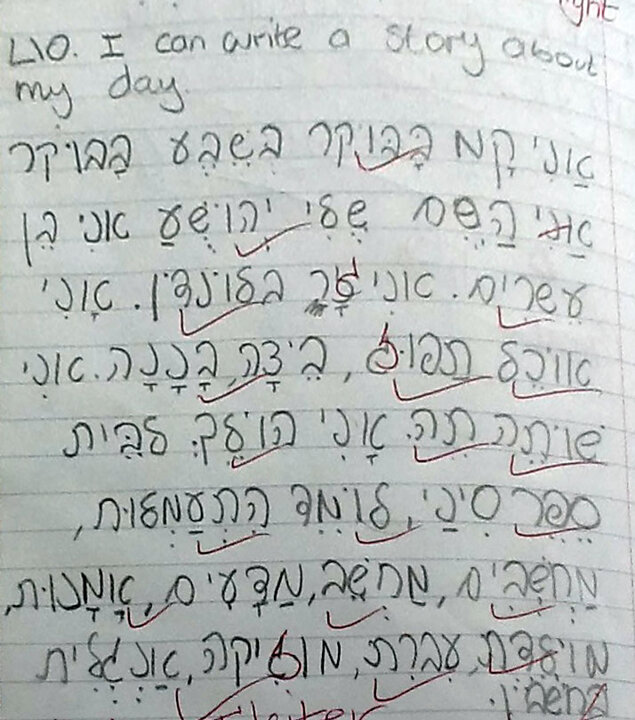 ght
L10. I can write a story about
my day.
אֲנִי קָם בַּבּוֹקֶר בְּשֶׁבַע בַּבּוֹקֶר
אֲנִי הַשֵּׁם שֶׁלִּי יְהוֹשֻׁעַ אֲנִי בֵּן
עֶשְׂרִים. אֲנִי גָּר בְּלוֹנְדוֹן. אֲנִי
אוֹכֵל תַּפּוּחַ, בֵּיצָה, בָּנָנָה. אֲנִי
שׁוֹתֶה תֵּה. אֲנִי הוֹלֵךְ לְבֵּית
סֵפֶר סִינַי, לוֹמֵד הִתְעַמְּלוּת,
מַחְשְׁבִים, מַחְשֵׁב, מַדָּעִים, אָמָּנוּת,
מוֹלֶדֶת, עִבְרִת, מוּזִיקָה, אַנְגְּלִית